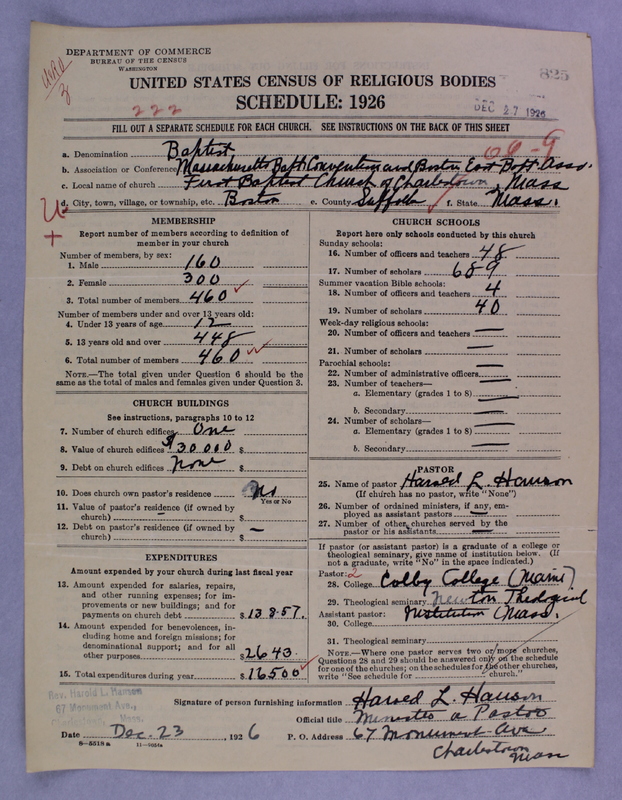 DEPARTMENT OF COMMERCE
BUREAU OF THE CENSUS
WASHINGTON
825
UNITED STATES CENSUS OF RELIGIOUS BODIES
SCHEDULE: 1926
222
DEC 27 1926
FILL OUT A SEPARATE SCHEDULE FOR EACH CHURCH. SEE INSTRUCTIONS ON THE BACK OF THIS SHEET
a. Denomination Baptist
b. Association or Conference Massachusetts Bapt. Convention and Boston East Bapt. Asso.
c. Local name of church First Baptist Church of Charlestown, Mass
d. City, town, village, or township, etc. Boston e. County Suffolk f. State Mass.
MEMBERSHIP
Report number of members according to definition of member in your church
Number of members, by sex:
1. Male 160
2. Female 300
3. Total number of members 460
Number of members under and over 13 years old:
4. Under 13 years of age 12
5. 13 years old and over 448
6. Total number of members 460
NOTE.—The total given under Question 6 should be the same as the total of males and females given under Question 3.
CHURCH BUILDINGS
See instructions, paragraphs 10 to 12
7. Number of church edifices One
8. Value of church edifices $30000 $
9. Debt on church edifices None $
10. Does church own pastor's residence No
Yes or No
11. Value of pastor's residence (if owned by church) — $
12. Debt on pastor's residence (if owned by church) — $
EXPENDITURES
Amount expended by your church during last fiscal year
13. Amount expended for salaries, repairs, and other running expenses; for improvements or new buildings; and for payments on church debt $13857.
14. Amount expended for benevolences, including home and foreign missions; for denominational support; and for all other purposes $2643
15. Total expenditures during year $16500
CHURCH SCHOOLS
Report here only schools conducted by this church
Sunday schools:
16. Number of officers and teachers 48
17. Number of scholars 689
Summer vacation Bible schools:
18. Number of officers and teachers 4
19. Number of scholars 40
Week-day religious schools:
20. Number of officers and teachers —
21. Number of scholars —
Parochial schools:
22. Number of administrative officers —
23. Number of teachers—
a. Elementary (grades 1 to 8) —
b. Secondary —
24. Number of scholars—
a. Elementary (grades 1 to 8) —
b. Secondary —
PASTOR
25. Name of pastor Harold L. Hanson
(If church has no pastor, write "None")
26. Number of ordained ministers, if any, employed as assistant pastors —
27. Number of other churches served by the pastor or his assistants —
If pastor (or assistant pastor) is a graduate of a college or theological seminary, give name of institution below. (If not a graduate, write "No" in the space indicated.)
Pastor: 2
28. College Colby College (Maine)
29. Theological seminary Newton Theological
Assistant pastor: Institution (Mass)
30. College
31. Theological seminary
NOTE.—Where one pastor serves two or more churches, Questions 28 and 29 should be answered only on the schedule for one of the churches; on the schedules for the other churches, write "See schedule for church."
Rev. Harold L. Hanson
67 Monument Ave.,
Charlestown, Mass.
Signature of person furnishing information Harold L. Hanson
Official title Minister or Pastor
Date Dec. 23, 1926 P. O. Address 67 Monument Ave
Charlestown
Mass
8—5518 a